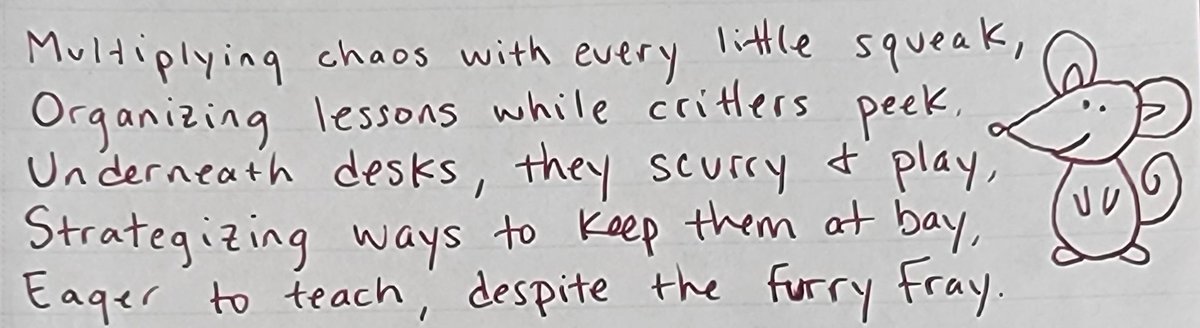 Multiplying chaos with every little squeak,
Organizing lessons while critters peek.
Underneath desks, they scurry & play,
Strategizing ways to keep them at bay,
Eager to teach, despite the furry fray.